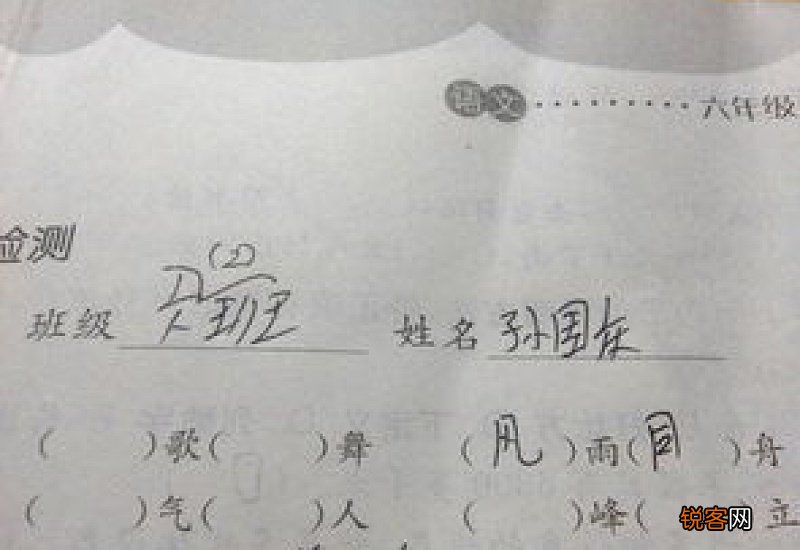 语文·········六年级
检测
(2)
班级 班 姓名 孙国
( )歌( )舞 (风)雨(同)舟
( )气( )人 ( )峰( )立
锐客网